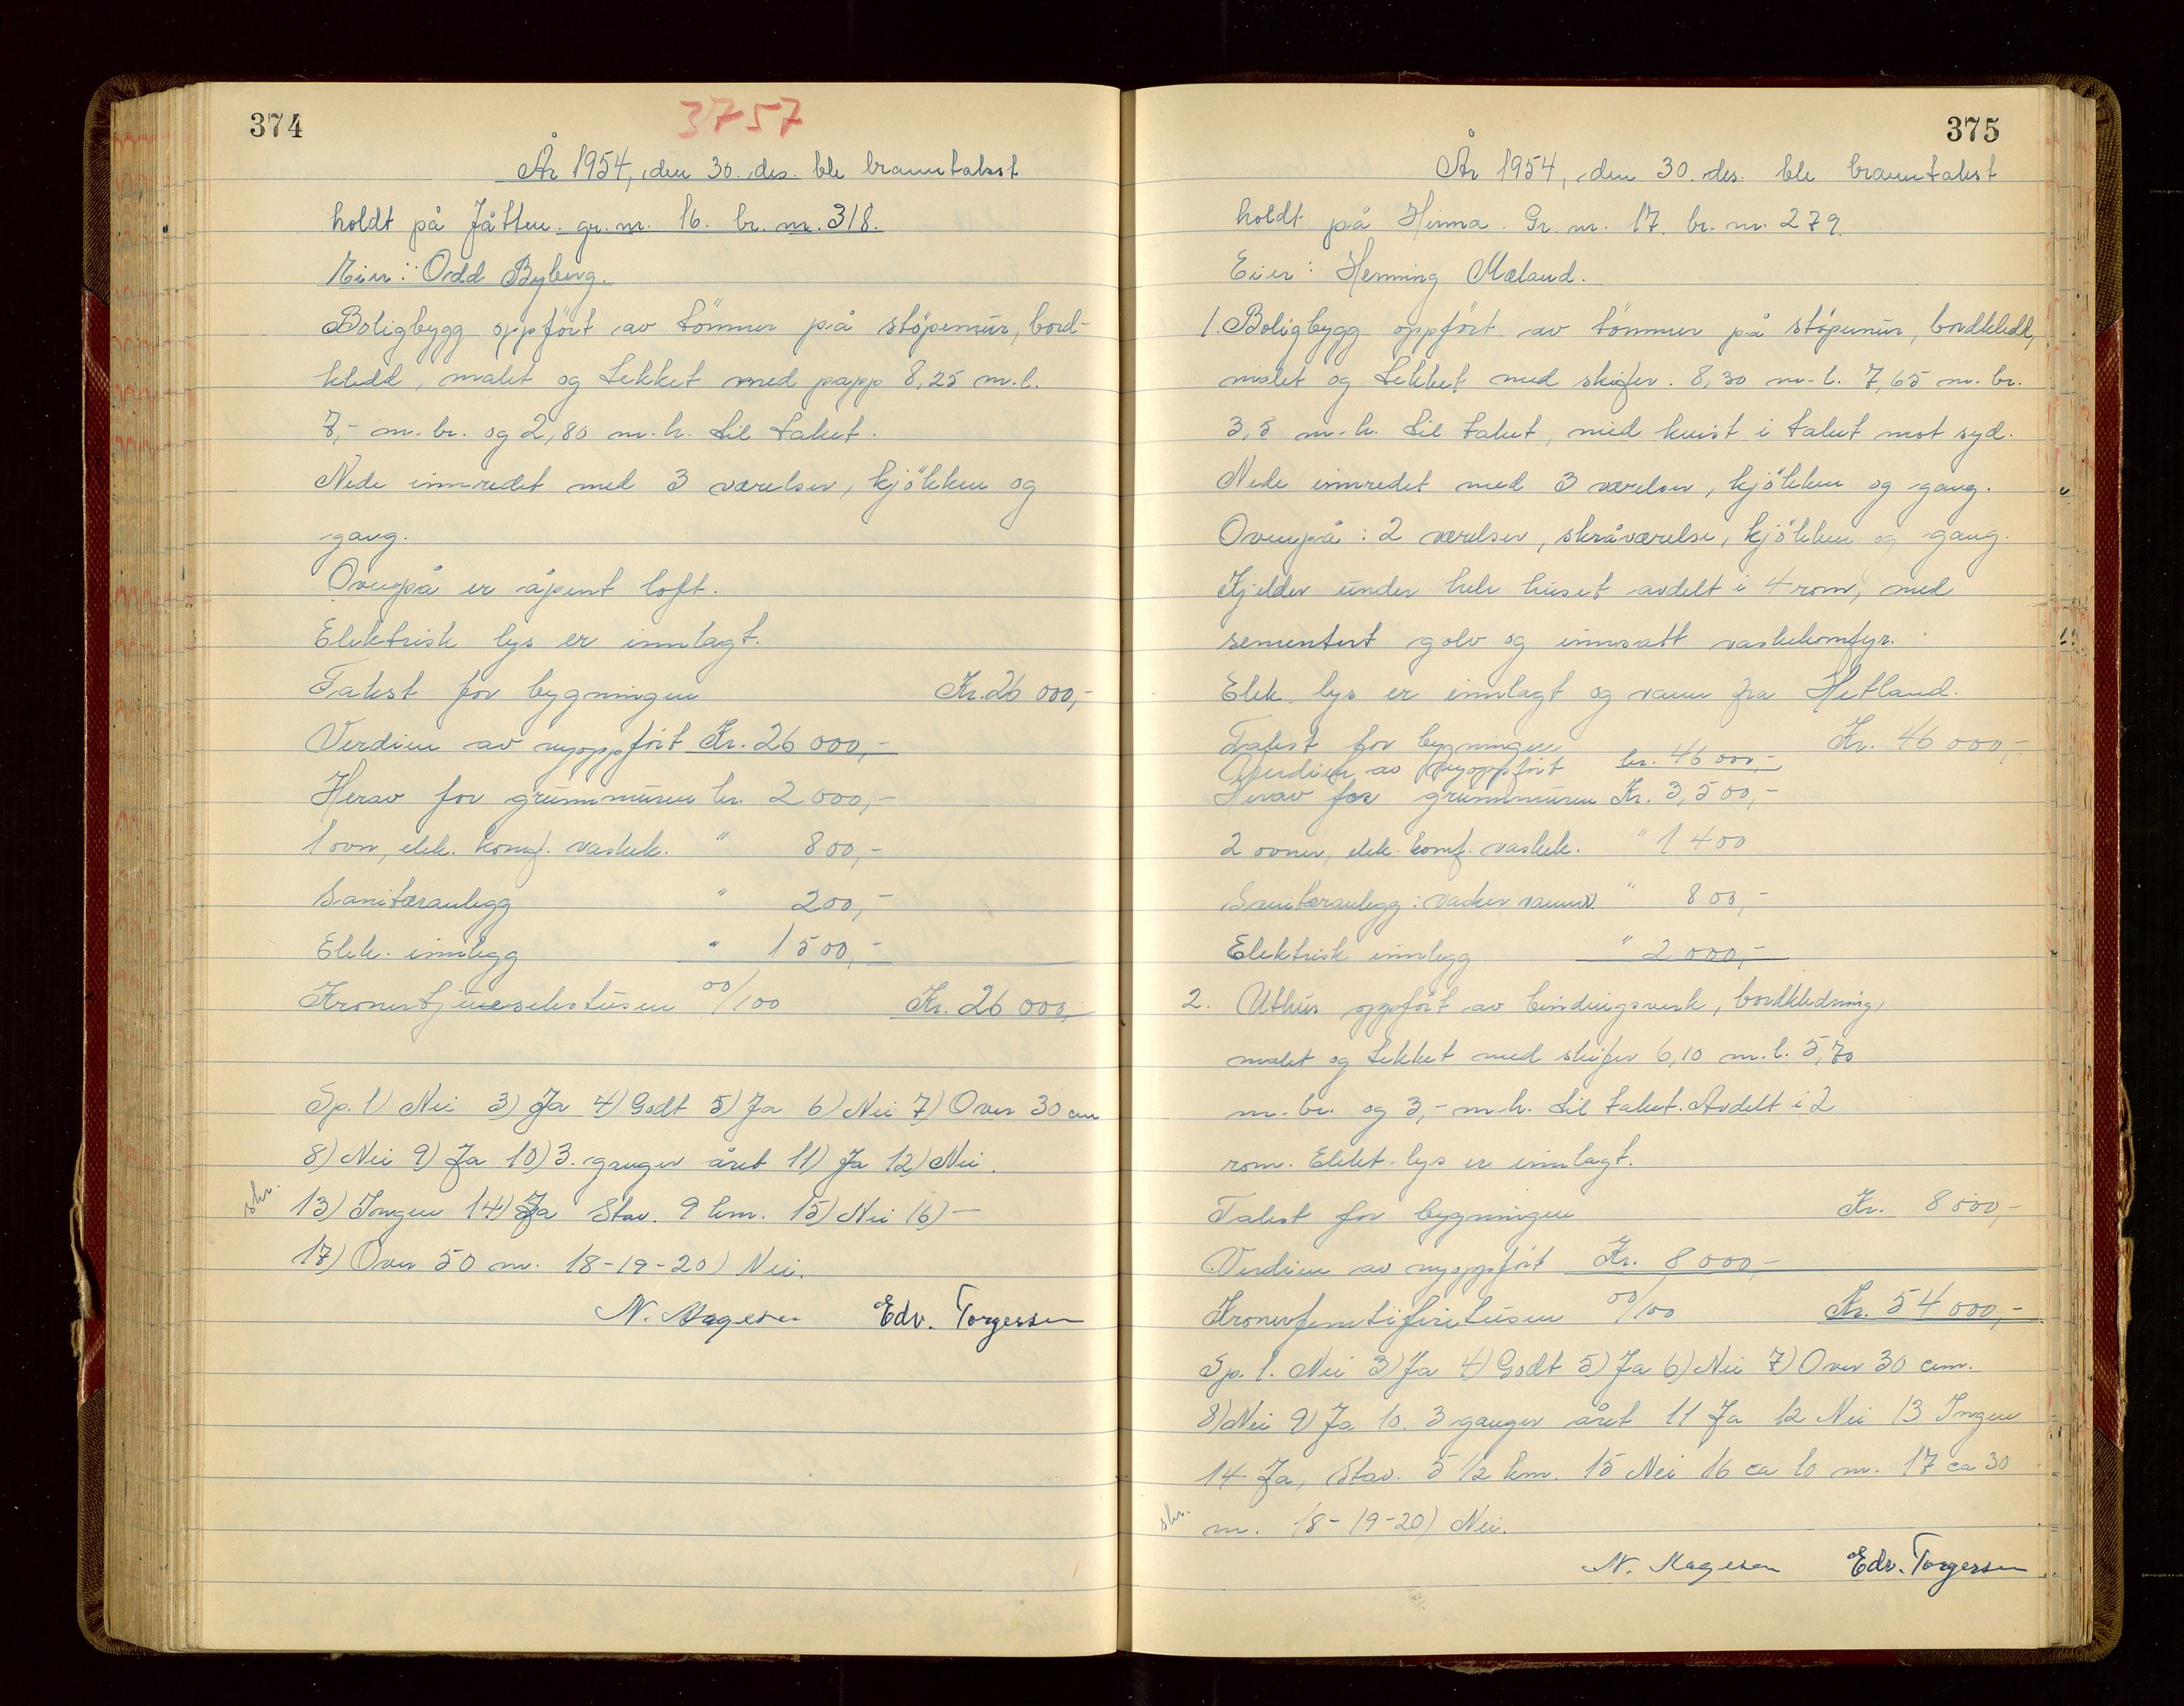 374
3757
År 1954, den 30. des. ble branntakst
holdt på Jåtten. gr. nr. 16. br. nr. 318.
Eier: Odd Byberg.
Boligbygg oppført av tømmer på støpemur, bord-
kledd, malet og tekket med papp 8,25 m. l.
7,- m. br. og 2,80 m. h. til taket.
Nede innredet med 3 værelser, kjøkken og
gang.
Ovenpå er åpent loft.
Elektrisk lys er innlagt.
Takst for bygningen Kr. 26 000,-
Verdien av nyoppført Kr. 26 000,-
Herav for grunnmuren kr. 2 000,-
1 ovn, elek. komf. vaskek. " 800,-
Sanitæranlegg " 200,-
Elek. innlegg " 1500,-
Kronertjueseksstusen 00/100 Kr. 26 000,
Sp. 1) Nei 3) Ja 4) Godt 5) Ja 6) Nei 7) Over 30 cm
8) Nei 9) Ja 10) 3. ganger året 11) Ja 12) Nei.
skr.
13) Ingen 14) Ja Stav. 9 km. 15) Nei 16) -
17) Over 50 m. 18-19-20) Nei.
N. Aageson Edv. Torgersen
375
År 1954, den 30. des. ble branntakst
holdt på Hinna. Gr. nr. 17. br. nr. 279.
Eier: Henning Mæland.
1. Boligbygg oppført av tømmer på støpemur, bordkledd,
malet og tekket med skifer. 8,30 m. l. 7,65 m. br.
3,5 m. h. til taket, med kvist i taket mot syd.
Nede innredet med 3 værelser, kjøkken og gang.
Ovenpå: 2 værelser, skråværelse, kjøkken og gang.
Kjelder under hele huset avdelt i 4 rom, med
sementert golv og innsatt vaskekomfyr.
Elek. lys er innlagt og vann fra Hetland.
Takst for bygningen Kr. 46 000,-
Verdien av nyoppført kr. 46 000,-
Herav for grunnmuren Kr. 3,500,-
2 ovner, elek. komf. vaskek. " 1400
Sanitæranlegg: vasker vannv. " 800,-
Elektrisk innlegg " 2 000,-
2. Uthus oppført av bindingsverk, bordkledning,
malet og tekket med skifer 6,10 m. l. 5,70
m. br. og 3,- m. h. til taket. Avdelt i 2
rom. Elekt. lys er innlagt.
Takst for bygningen Kr. 8 000,-
Verdien av nyoppført Kr. 8 000,-
Kronerfemtifiretusen 00/100 Kr. 54 000,-
Sp. 1. Nei 3) Ja 4) Godt 5) Ja 6) Nei 7) Over 30 cm.
8) Nei 9) Ja 10. 3 ganger året 11 Ja 12 Nei 13 Ingen
14. Ja, Stav. 5 1/2 km. 15 Nei 16 ca 10 m. 17 ca 30
skr.
m. 18-19-20) Nei.
N. Aageson Edv. Torgersen